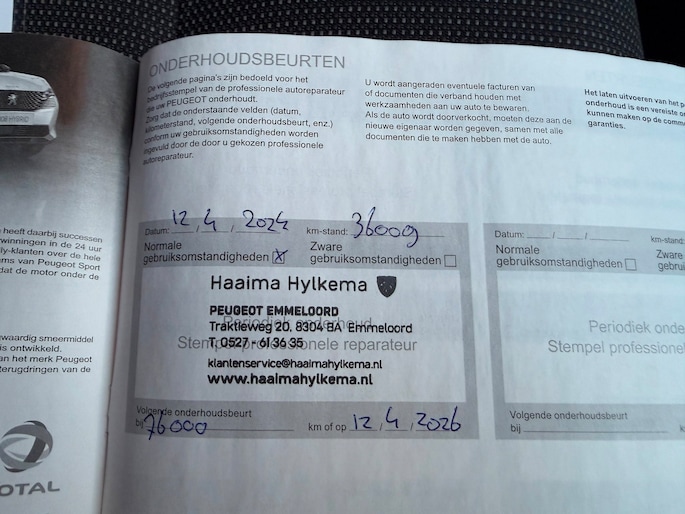 ONDERHOUDSBEURTEN
De volgende pagina's zijn bedoeld voor het
bedrijfsstempel van de professionele autoreparateur
die uw PEUGEOT onderhoudt.
Zorg dat de onderstaande velden (datum,
kilometerstand, volgende onderhoudsbeurt, enz.)
conform uw gebruiksomstandigheden worden
ingevuld door de door u gekozen professionele
autoreparateur.
U wordt aangeraden eventuele facturen van
of documenten die verband houden met
werkzaamheden aan uw auto te bewaren.
Als de auto wordt doorverkocht, moeten deze aan de
nieuwe eigenaar worden gegeven, samen met alle
documenten die te maken hebben met de auto.
Het laten uitvoeren van het p
onderhoud is een vereiste o
kunnen maken op de comm
garanties.
heeft daarbij successen
winningen in de 24 uur
ly-klanten over de hele
ms van Peugeot Sport
dat de motor onder de
waardig smeermiddel
is ontwikkeld.
an het merk Peugeot
terugdringen van de
OTAL
Datum: 12 / 4 / 2024 km-stand: 36009
Normale gebruiksomstandigheden ☒ Zware gebruiksomstandigheden ☐
Haaima Hylkema
PEUGEOT EMMELOORD
Periodiek onderhoud
Traktieweg 20, 8304 BA Emmeloord
Stempel professionele reparateur
T. 0527 - 61 36 35
klantenservice@haaimahylkema.nl
www.haaimahylkema.nl
Volgende onderhoudsbeurt
bij 76000 km of op 12 / 4 / 2026
Datum: / / km-stand:
Normale gebruiksomstandigheden ☐ Zware gebruiks
Periodiek onde
Stempel professionel
Volgende onderhoudsbeurt
bij k